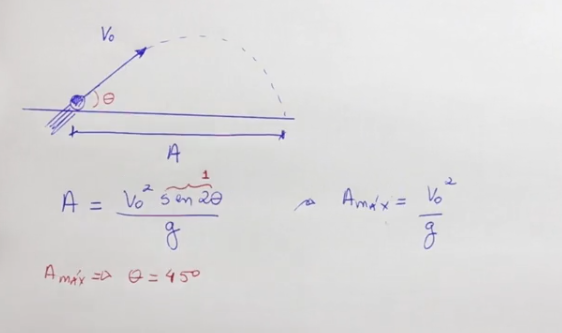 V₀
θ
A
A = V₀² sen 2θ / g
1
⇒ Amáx = V₀² / g
Amáx ⇒ θ = 45º